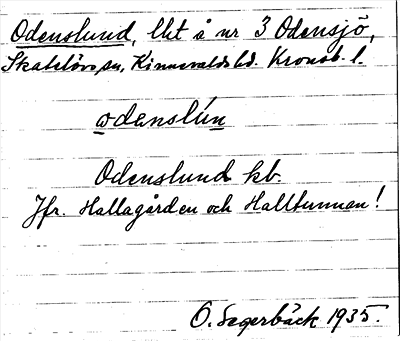 Odenslund, lht å nr 3 Odensjö,
Skatelövs sn, Kinnevalds hd. Kronob. l.
odenslún
Odenslund kb.
Jfr. Hallagården och Halltunnan!
O. Segerbäck 1935.